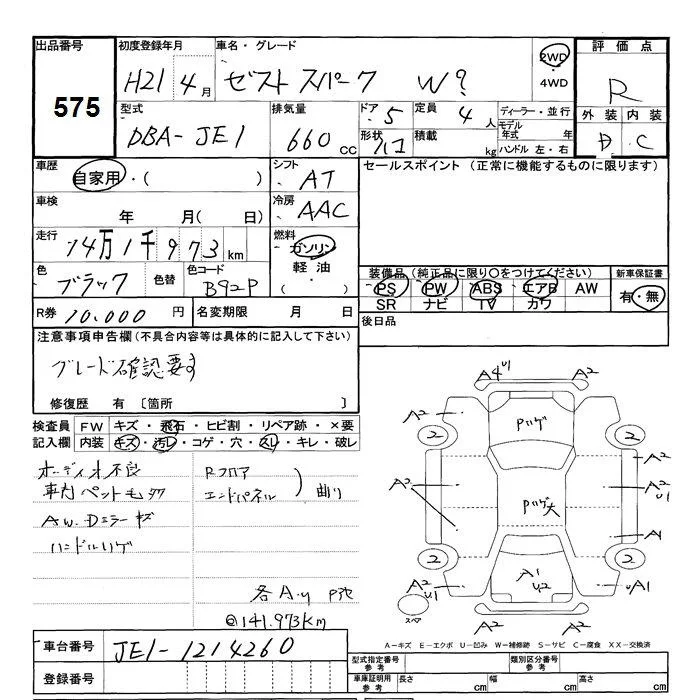 出品番号 初度登録年月 車名・グレード 評価点
575
H21 4月 ゼスト スパーク W? 2WD・4WD R
型式 排気量 ドア 5 定員 4人 ディーラー・並行 外装 内装
DBA-JE1 660cc 形状 ハコ 積載 kg モデル年式 年 D C
ハンドル 左・右
車歴 自家用・( ) シフト AT セールスポイント (正常に機能するものに限ります)
車検 年 月( 日) 冷房 AAC
走行 14万1千973km 燃料 ガソリン・軽油・( )
色 ブラック 色替 色コード B92P
装備品(純正品に限り○をつけてください) 新車保証書
PS PW ABS エアB AW 有・無
SR ナビ TV カワ
R券 10,000円 名変期限 月 日 後日品
注意事項申告欄(不具合内容等は具体的に記入して下さい)
グレード確認要す
修復歴 有〔箇所 〕
検査員記入欄 FW キズ・飛石・ヒビ割・リペア跡・×要
内装 キズ・汚レ・コゲ・穴・スレ・キレ・破レ
オーディオ不良
車内ペット毛
AW.Dミラーキズ
ハンドルハゲ
Rフロア
エンドパネル
曲り
各A.U
@141.973km
A4 U1 A2
A2 Pハゲ A2
2 2
A2 Pハゲ大 A2 U1
A1
2 2
A2 U1 A1 U2 UA1
スペア A2 A2
A-キズ E-エクボ U-凹み W-補修跡 S-サビ C-腐食 XX-交換済
車台番号 JE1-1214260
登録番号
型式指定番号 参考 類別区分番号 参考
車庫証明用 参考 長さ cm 幅 cm 高さ cm